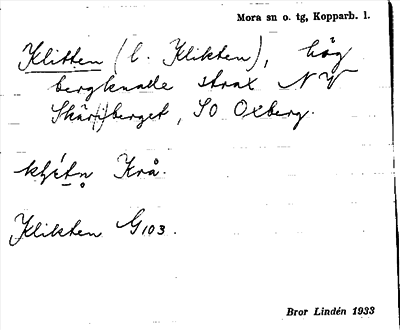 Mora sn o. tg, Kopparb. l.
Klitten (l. Klikten), hög
bergknalle strax NV
Skär(i)berget, SO Oxberg.
Krå.
Klikten G103.
Bror Lindén 1933